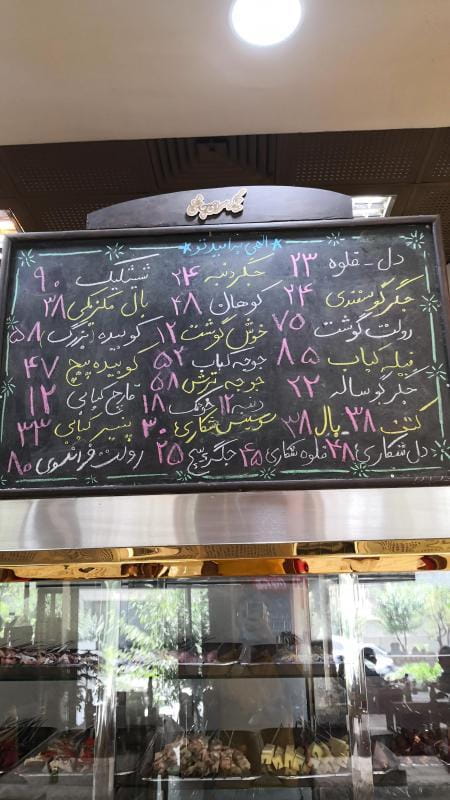 الهی به امید تو
دل - قلوه ۲۳ جگر دنبه ۲۴ شیشلیک ۹۰
جگر گوسفندی ۲۴ کوهان ۴۸ بال مکزیکی ۳۸
رولت گوشت ۷۵ خوش گوشت ۱۲ کوبیده (بزرگ) ۵۸
فیله کباب ۸۵ جوجه کباب ۵۲ کوبیده پیچ ۴۷
جگر گوساله ۲۲ جوجه ترش ۵۸ قارچ کبابی ۱۲
کتف ۳۸ - بال ۳۸ دنبه ۱۲ ۱۸ سوسیس شکاری ۳۰ پنیر کبابی ۳۳
دل شکاری ۴۸ قلوه شکاری ۴۵ جگر پیچ ۲۵ رولت فرانسوی ۸۰